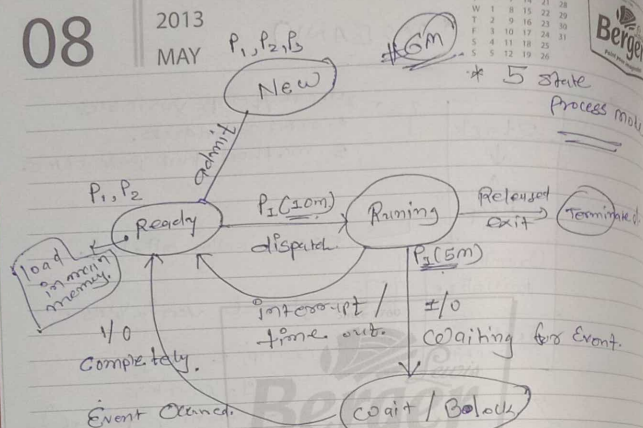 08
2013
MAY
W 1 8 15 22 29
T 2 9 16 23 30
F 3 10 17 24 31
S 4 11 18 25
S 5 12 19 26
Berger
P₁, P₂, P₃
#5M
* 5 state
Process
New
admit
P₁, P₂
Ready
P₁ (10m)
dispatch.
Runing
Released
exit
Terminated
load
in main
memory.
P₁ (5m)
interrupt /
time out.
I/O
Waiting for Event.
I/O
Completely.
Event Occured.
wait / Bolock
Berger